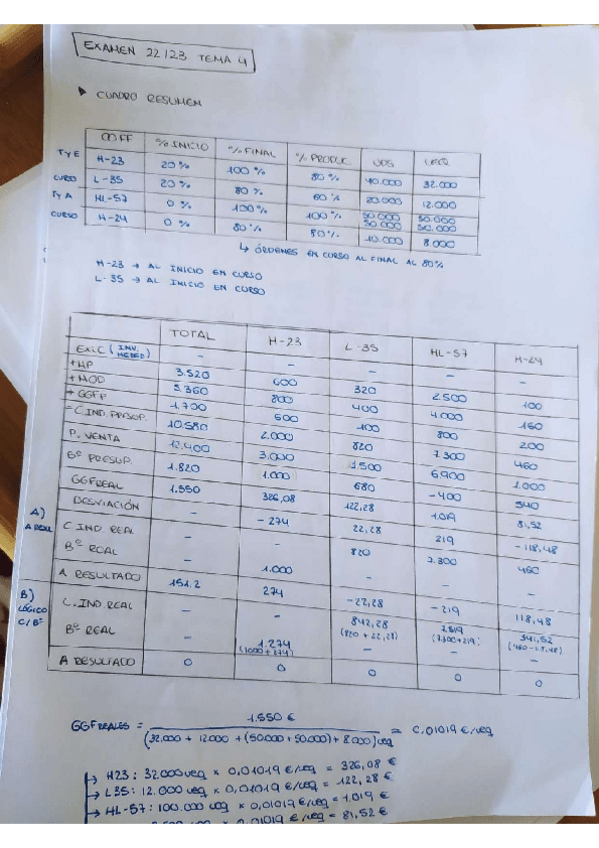 EXAMEN 22/23 TEMA 4
▶ CUADRO RESUMEN
COFF % INICIO % FINAL % PRODUC UDS UEQ
TyE H-23 20% 100% 80% 40.000 32.000
CURSO L-35 20% 80% 60% 20.000 12.000
TyA HL-57 0% 100% 100% 50.000 50.000
50.000 50.000
CURSO H-24 0% 80% 80% 10.000 8.000
↳ ÓRDENES EN CURSO AL FINAL AL 80%
H-23 → AL INICIO EN CURSO
L-35 → AL INICIO EN CURSO
TOTAL H-23 L-35 HL-57 H-24
EXI.C (INV. HERED) - - - - -
+MP 3.520 600 320 2.500 100
+MOD 5.360 800 400 4.000 160
+GGFP 1.700 600 100 800 200
=C.IND.PRESUP. 10.580 2.000 820 7.300 460
P. VENTA 12.400 3.000 1.500 6.900 1.000
Bº PRESUP. 1.820 1.000 680 -400 540
GGFREAL 1.550 326,08 122,28 1.019 81,52
DESVIACIÓN - -274 22,28 219 -118,48
A) A REAL
C IND REAL - 820 7.300 460
Bº REAL - 1.000 - - -
A RESULTADO 151.2 274 -22,28 -219 118,48
B) LÓGICO C/Bº
C.IND REAL - 842,28 7.519 341,52
(820 + 22,28) (7.300+219) (460-118,48)
Bº REAL - 1.274 - - -
(1000+274)
A RESULTADO 0 0 0 0 0
GGFREALES = 1.550 € / (32.000 + 12.000 + (50.000 + 50.000) + 8.000) ueq = 0,01019 €/ueq
↳ H23: 32.000 ueq × 0,01019 €/ueq = 326,08 €
→ L35: 12.000 ueq × 0,01019 €/ueq = 122,28 €
→ HL-57: 100.000 ueq × 0,01019 €/ueq = 1.019 €
× 0,01019 €/ueq = 81,52 €